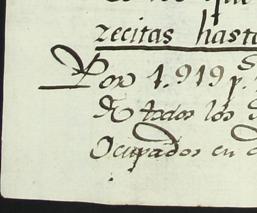 zecitas hasta
Por 1.919 p.s
de todos los
Ocupados en